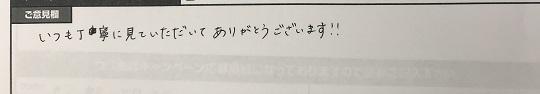 ご意見欄
いつも丁寧に見ていただいてありがとうございます!!